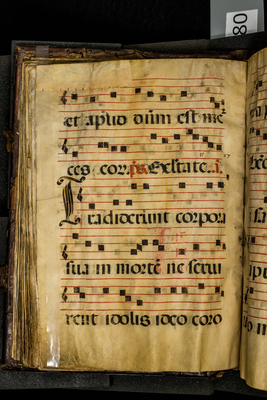 80
et apud dūm est mē
ces cor. ps. Exltate. ā.
Tradiderunt corpora
sua in mortē ne servi
rent idolis ideo coro